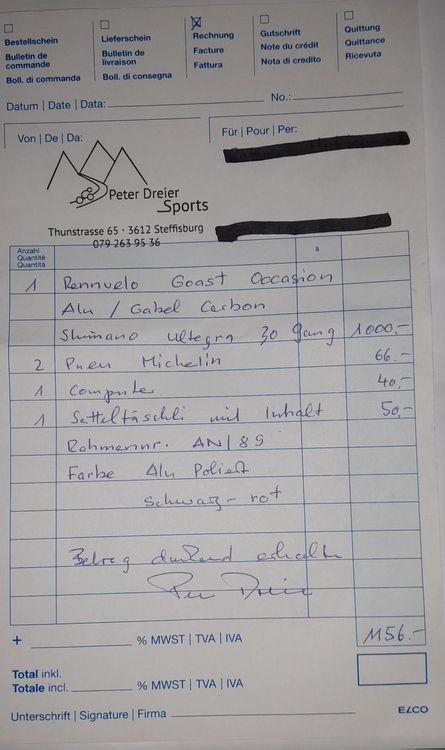 Bestellschein
Bulletin de
commande
Boll. di commanda
Lieferschein
Bulletin de
livraison
Boll. di consegna
Rechnung
Facture
Fattura
Gutschrift
Note du crédit
Nota di credito
Quittung
Quittance
Ricevuta
Datum | Date | Data:
No.:
Von | De | Da:
Für | Pour | Per:
Peter Dreier
Sports
Thunstrasse 65 · 3612 Steffisburg
079 263 95 36
Anzahl
Quantité
Quantità
à
1 Rennvelo Goast Occasion
Alu / Gabel Carbon
Shimano Ultegra 30 gang 1000.-
2 Pneu Michelin 66.-
1 Computer 40.-
1 Satteltäschli mit Inhalt 50.-
Rahmennr. AN/89
Farbe Alu Poliert
Schwarz - rot
Betrag dankend erhalten
+ % MWST | TVA | IVA 1156.-
Total inkl.
Totale incl. % MWST | TVA | IVA
Unterschrift | Signature | Firma
ELCO